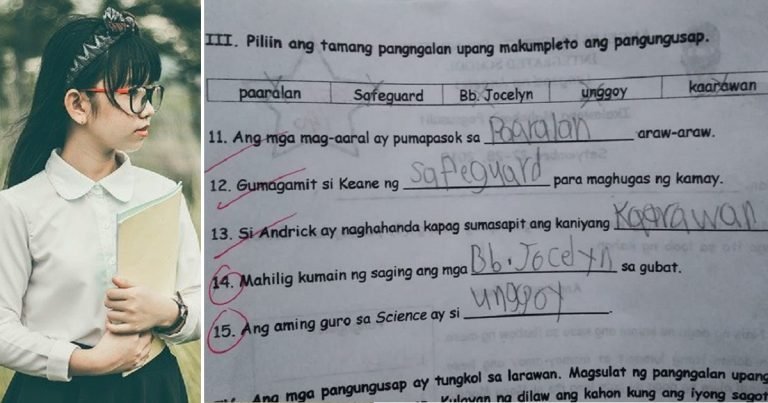 III. Piliin ang tamang pangngalan upang makumpleto ang pangungusap.
paaralan Safeguard Bb. Jocelyn unggoy kaarawan
11. Ang mga mag-aaral ay pumapasok sa Paaralan araw-araw.
12. Gumagamit si Keane ng safeguard para maghugas ng kamay.
13. Si Andrick ay naghahanda kapag sumasapit ang kaniyang Kaarawan
14. Mahilig kumain ng saging ang mga Bb. Jocelyn sa gubat.
15. Ang aming guro sa Science ay si unggoy.
Ang mga pangungusap ay tungkol sa larawan. Magsulat ng pangngalan upang
Kulayan ng dilaw ang kahon kung ang iyong sagot